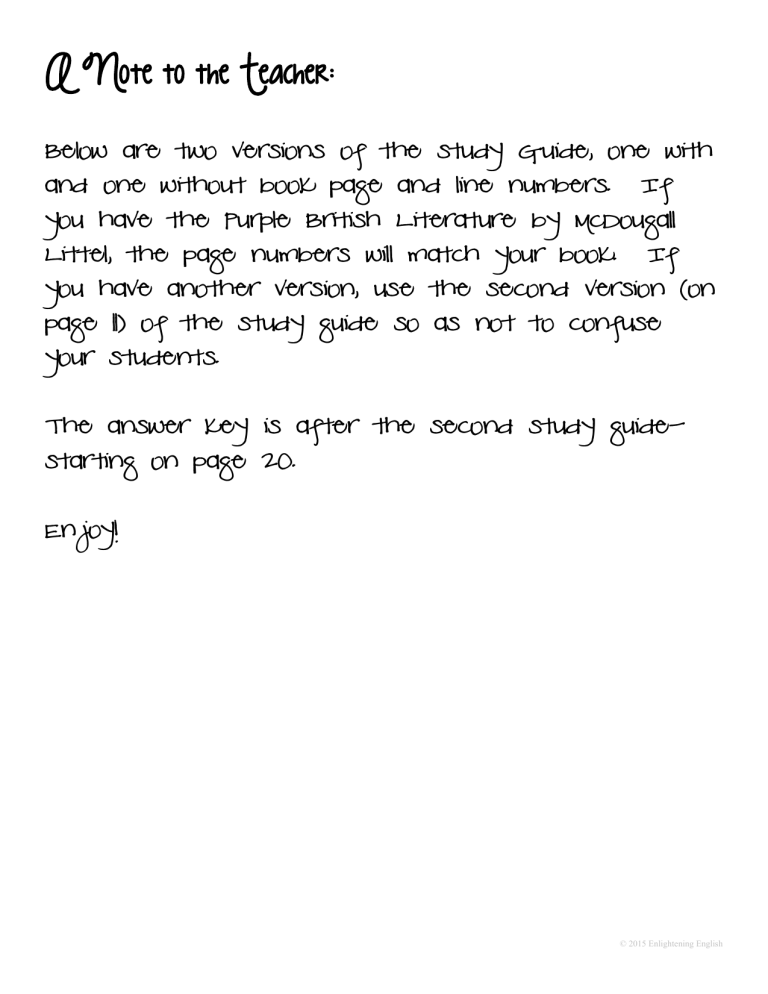 A Note to the Teacher:
Below are two versions of the Study Guide, one with
and one without book page and line numbers. If
you have the Purple British Literature by McDougall
Littel, the page numbers will match your book. If
you have another version, use the second version (on
page 11) of the study guide so as not to confuse
your students.
The answer key is after the second study guide-
starting on page 20.
Enjoy!
© 2015 Enlightening English